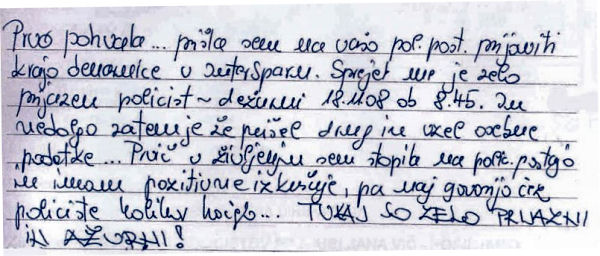 Prvo pohvala... prišla sem na vašo pol. post. prijaviti
krajo denarnice v Intersparu. Sprejel me je zelo
prijazen policist ~ dežurni 18.11.08 ob 8.45. In
nedolgo zatem je že prišel drug in vzel osebne
podatke... Prvič v življenju sem stopila na polic. postajo
in imam pozitivne izkušnje, pa naj govorijo čez
policiste kolikor hočejo... TUKAJ SO ZELO PRIJAZNI
IN AŽURNI!